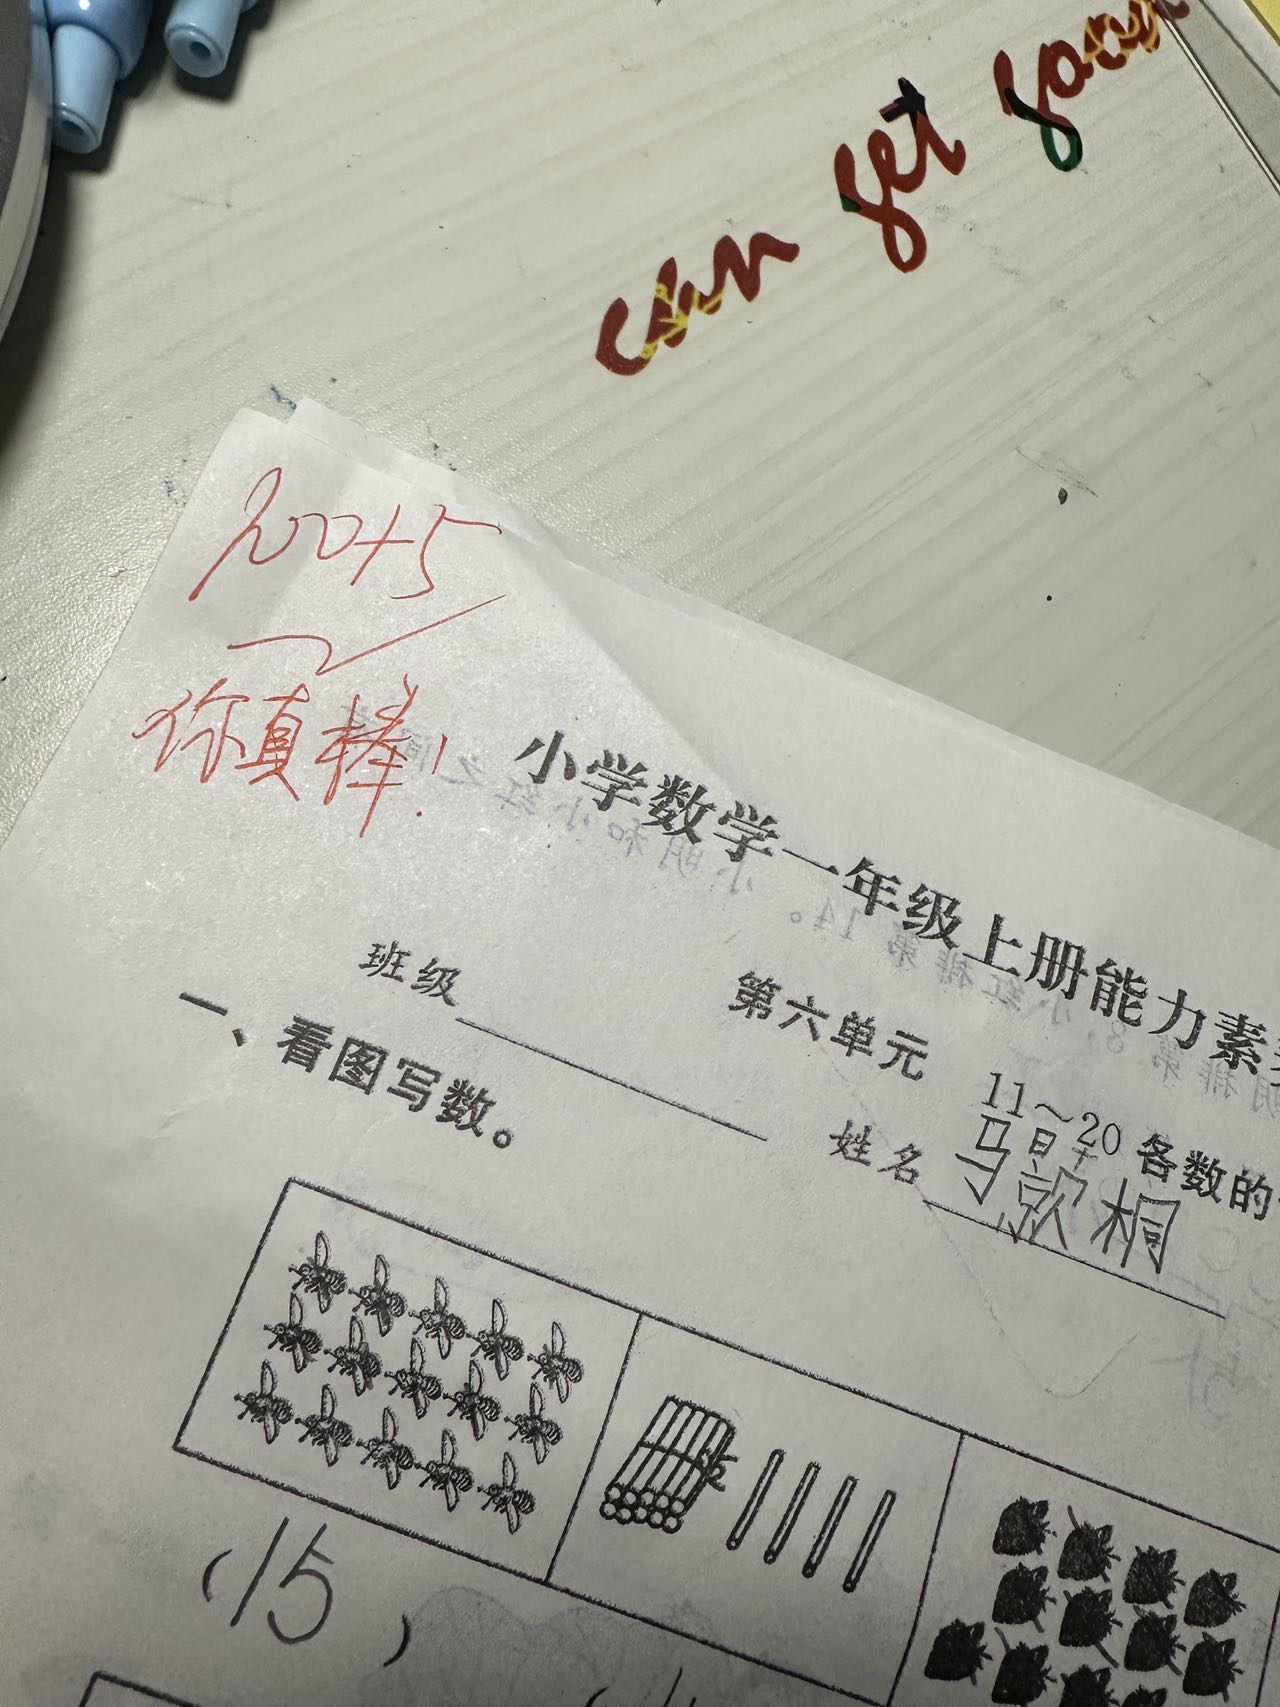 can get soon
100+5
你真棒!
小学数学一年级上册能力素
第六单元 11~20 各数的
班级 姓名 马歆桐
一、看图写数。
(15)